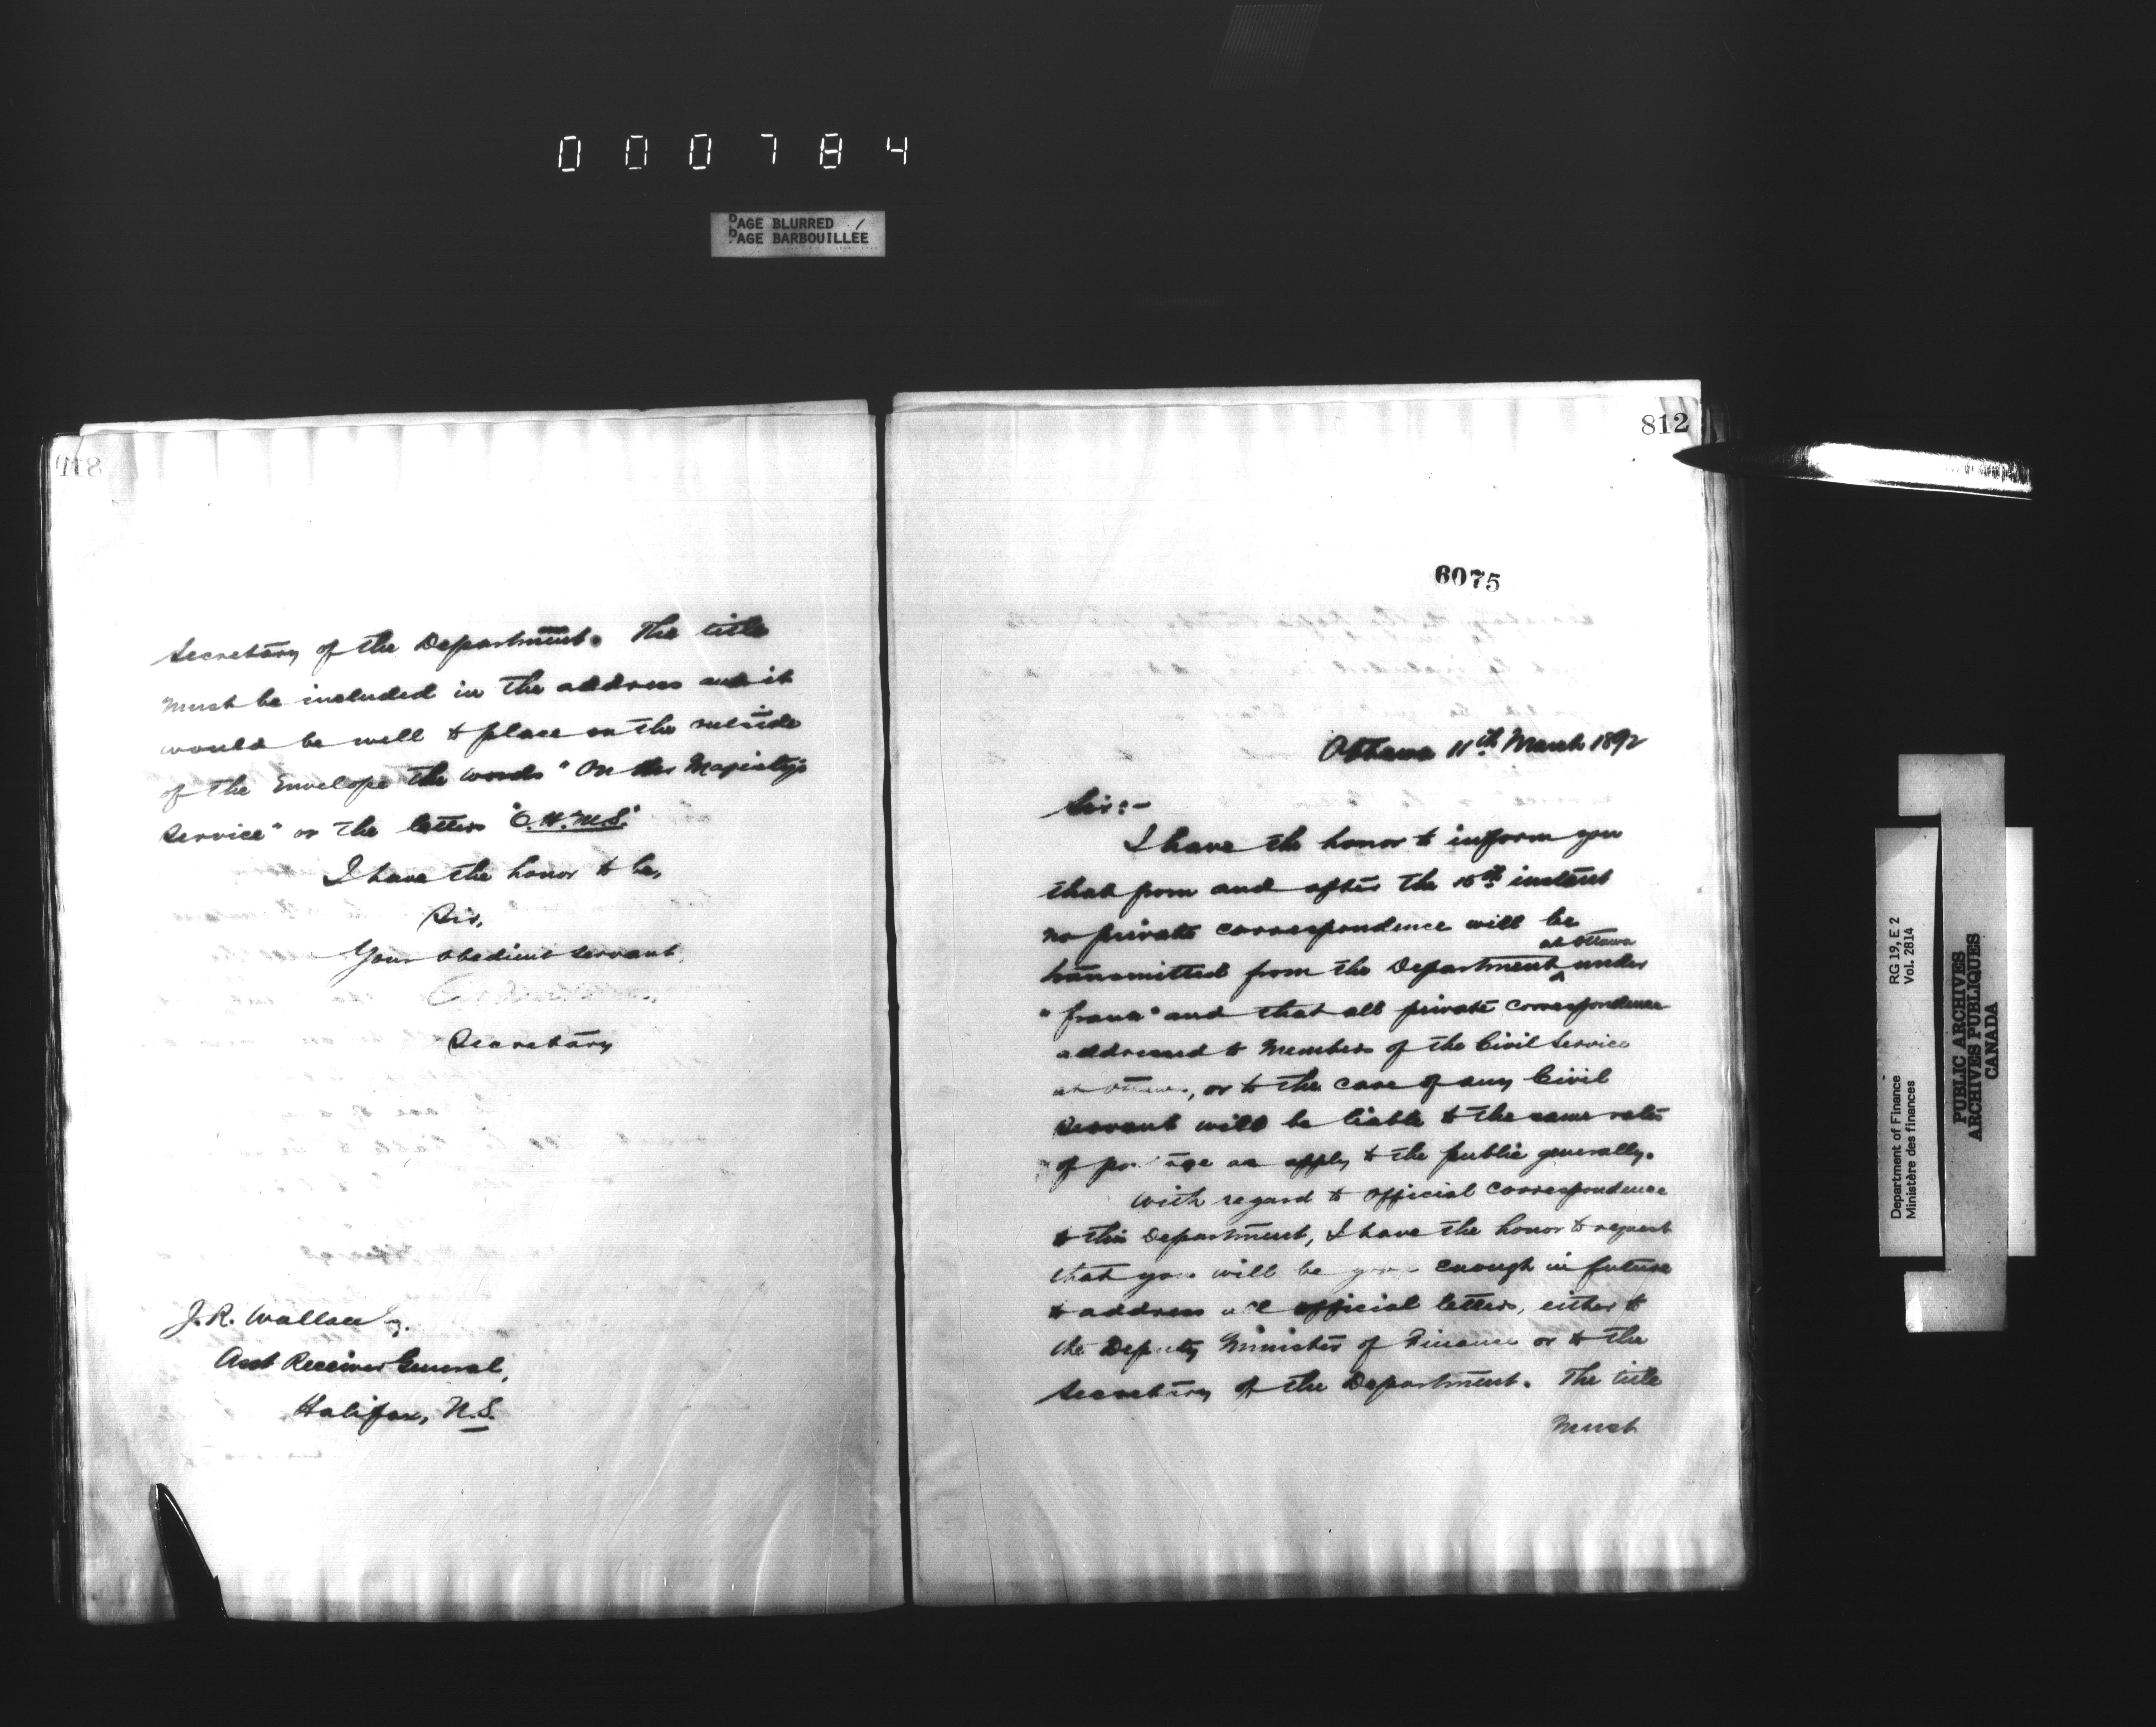 000784
PAGE BLURRED
PAGE BARBOUILLÉE
811
Secretary of the Department. The title
must be included in the address and it
would be well to place on the outside
of the Envelope the words "On Her Majesty's
Service" or the letters "O.H.M.S."
I have the honor to be,
Sir,
Your obedient servant,
Secretary
J. R. Wallace Esq.
Asst Receiver General,
Halifax, N.S.
812
6075
Ottawa 11th March 1892
Sir:-
I have the honor to inform you
that from and after the 15th instant
no private correspondence will be
at Ottawa
transmitted from the Department ^ under
"frank" and that all private correspondence
addressed to Members of the Civil Service
at Ottawa, or to the care of any Civil
Servant will be liable to the same rates
of postage as apply to the public generally.
With regard to official correspondence
to this Department, I have the honor to request
that you will be good enough in future
to address all official letters, either to
the Deputy Minister of Finance or to the
Secretary of the Department. The title
Must
Department of Finance RG 19, E 2
Ministère des finances Vol. 2814
PUBLIC ARCHIVES
ARCHIVES PUBLIQUES
CANADA